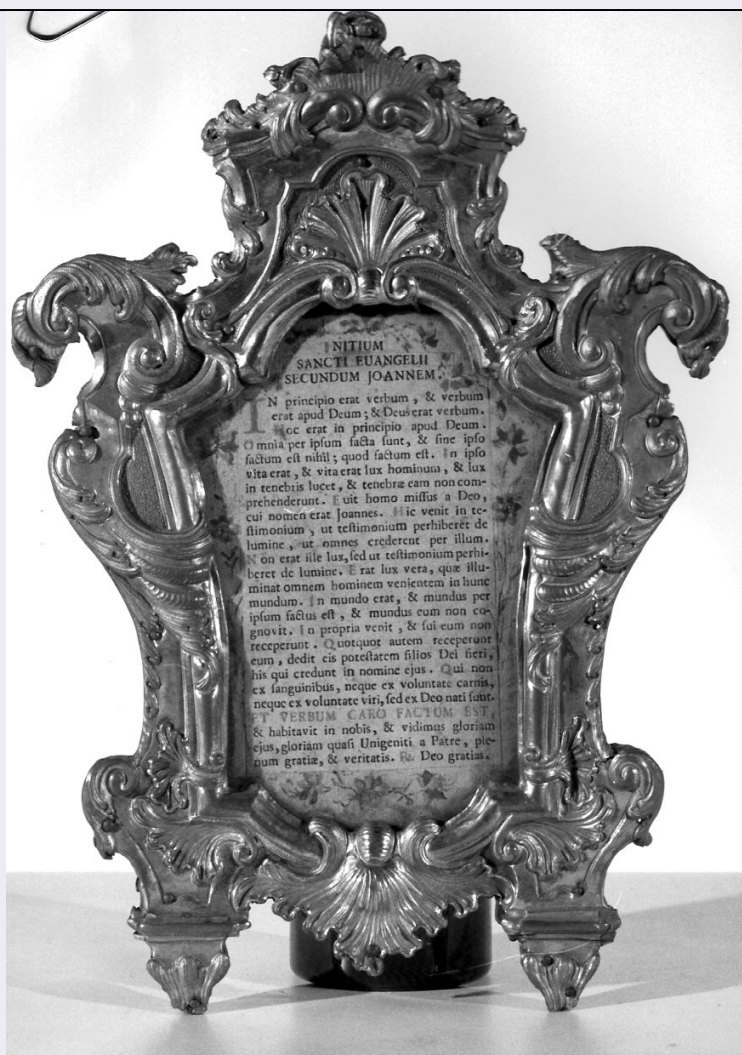 INITIUM
SANCTI EUANGELII
SECUNDUM JOANNEM.
IN principio erat verbum, & verbum
erat apud Deum; & Deus erat verbum.
Hoc erat in principio apud Deum.
Omnia per ipsum facta sunt, & sine ipso
factum est nihil; quod factum est. In ipso
vita erat, & vita erat lux hominum, & lux
in tenebris lucet, & tenebræ eam non com-
prehenderunt. Fuit homo missus a Deo,
cui nomen erat Joannes. Hic venit in te-
stimonium, ut testimonium perhiberet de
lumine, ut omnes crederent per illum.
Non erat ille lux, sed ut testimonium perhi-
beret de lumine. Erat lux vera, quæ illu-
minat omnem hominem venientem in hunc
mundum. In mundo erat, & mundus per
ipsum factus est, & mundus eum non co-
gnovit. In propria venit, & sui eum non
receperunt. Quotquot autem receperunt
eum, dedit eis potestatem filios Dei fieri,
his qui credunt in nomine ejus. Qui non
ex sanguinibus, neque ex voluntate carnis,
neque ex voluntate viri, sed ex Deo nati sunt.
ET VERBUM CARO FACTUM EST,
& habitavit in nobis, & vidimus gloriam
ejus, gloriam quasi Unigeniti a Patre, ple-
num gratiæ, & veritatis. ℟. Deo gratias.